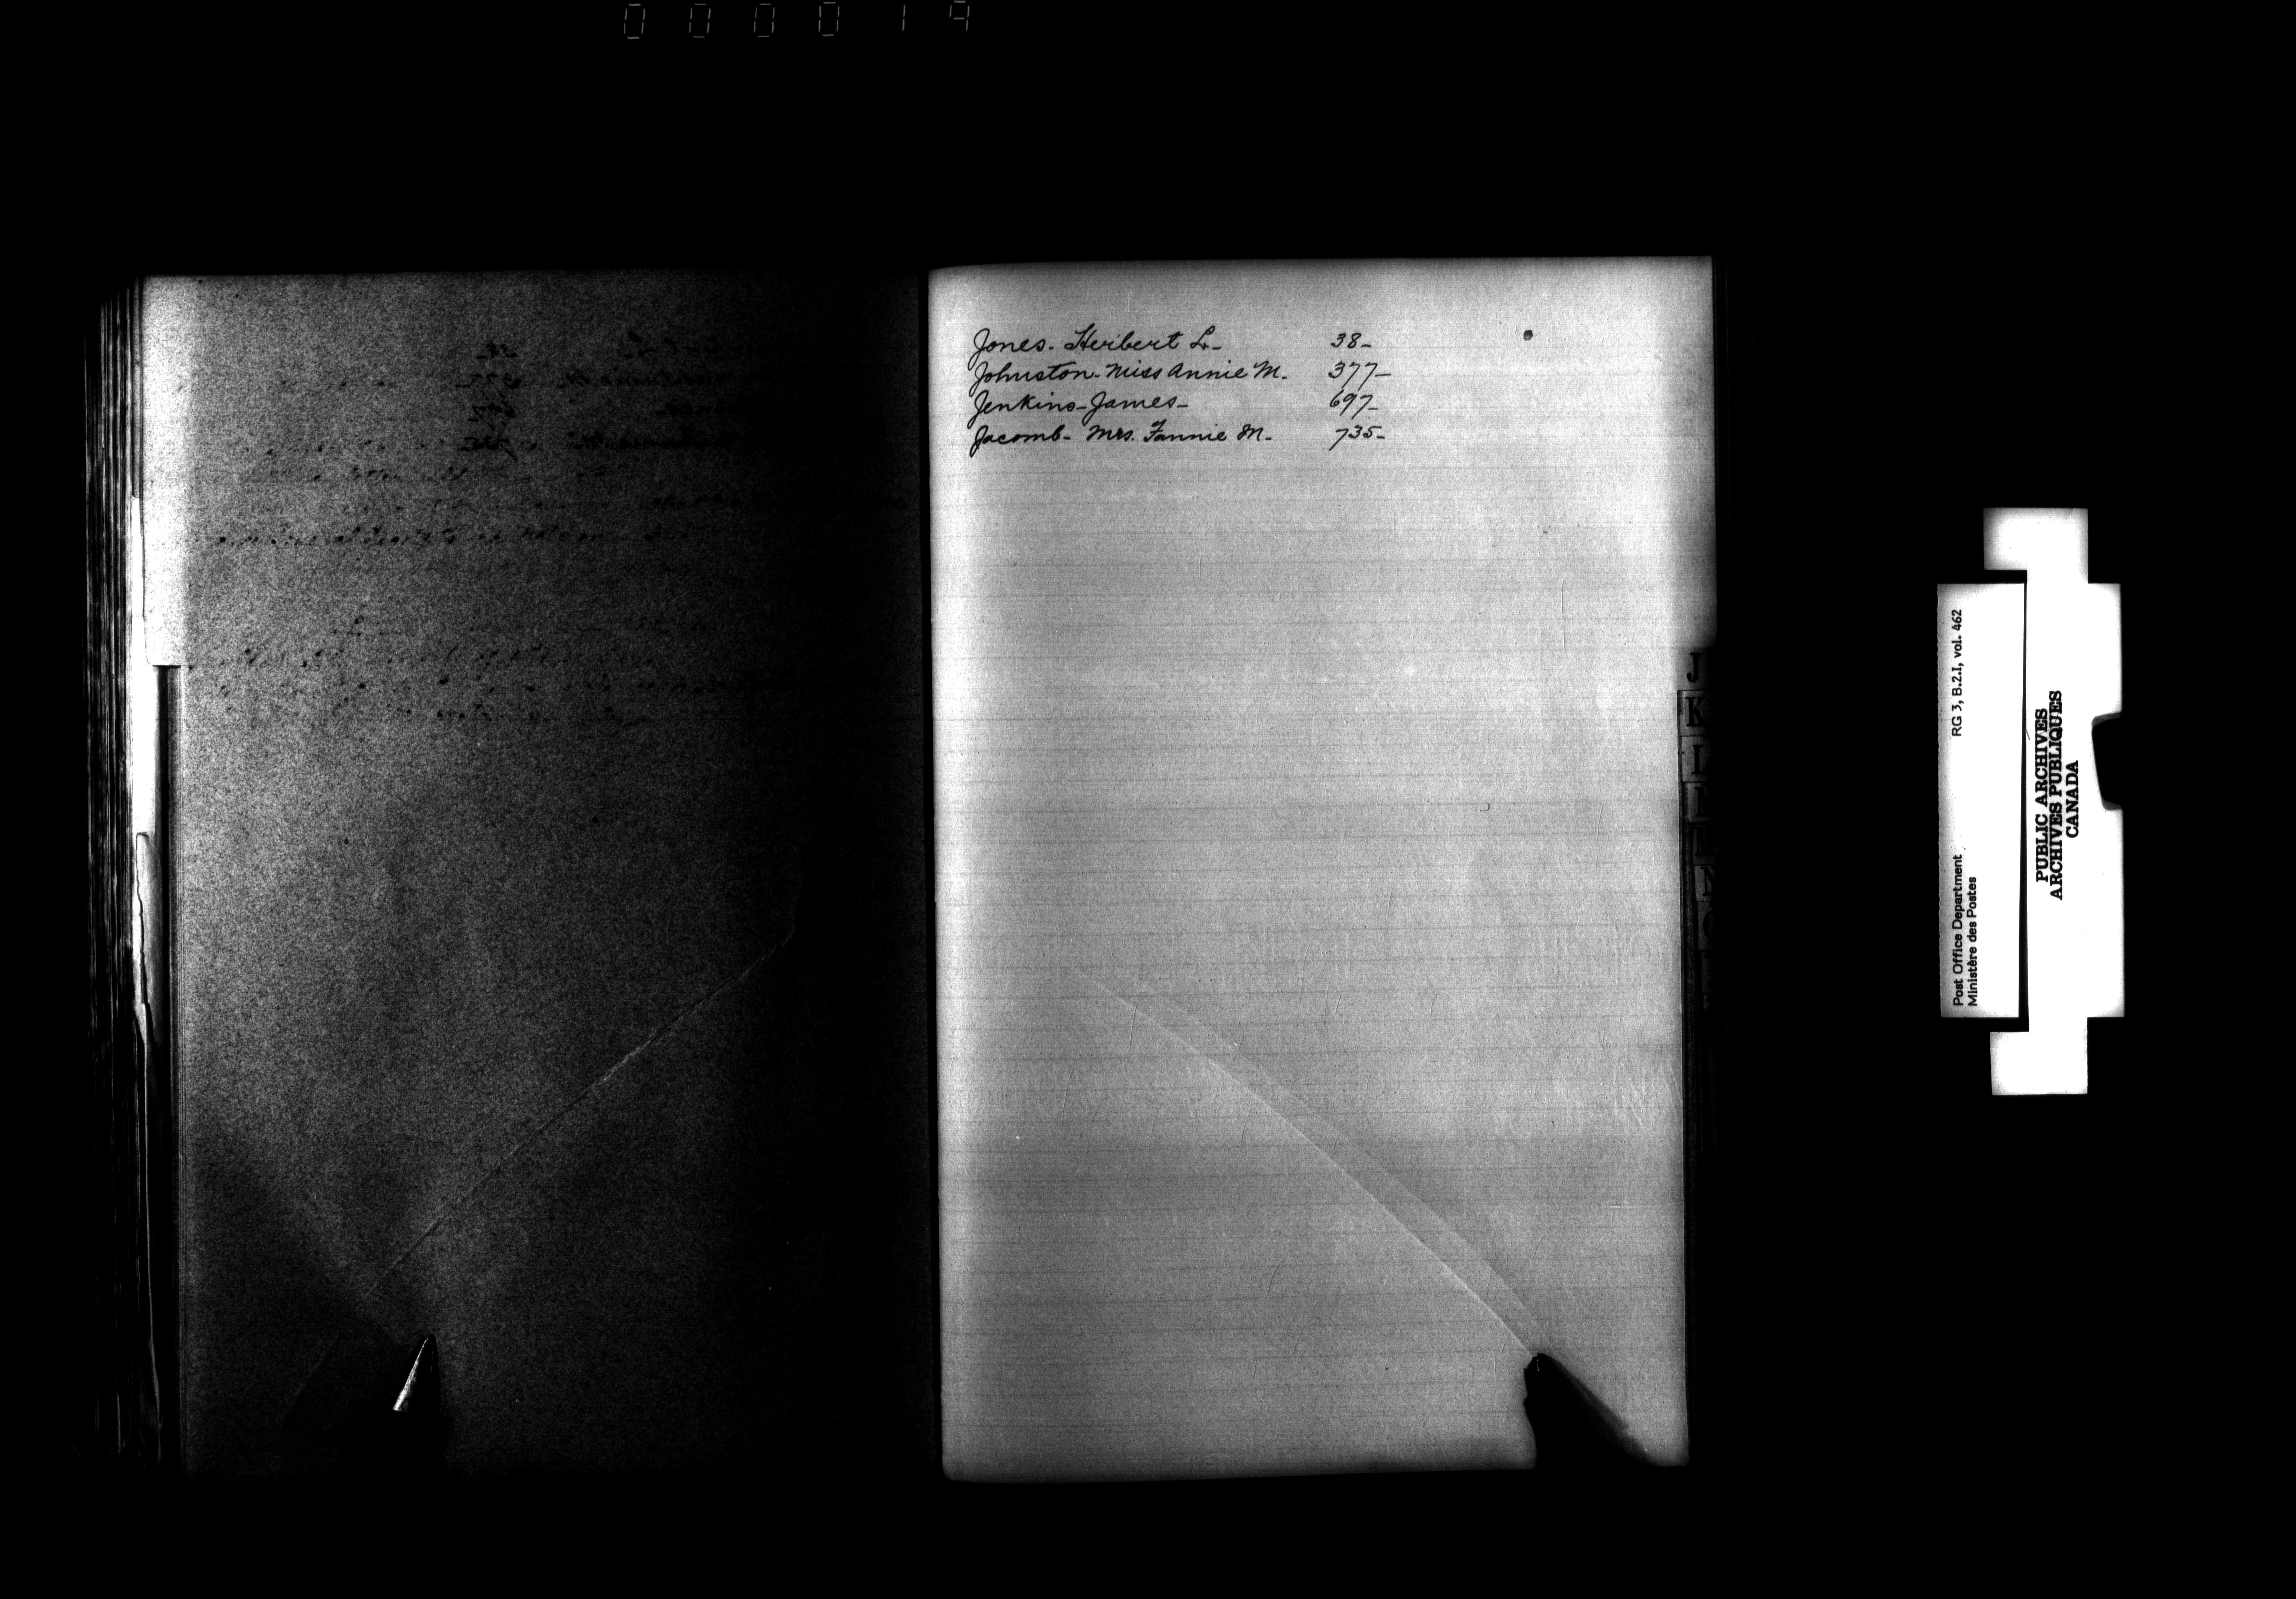 000019
Jones - Heribert L - 38 -
Johnston - Miss Annie M. 377 -
Jenkins - James - 697 -
Jacomb - Mrs. Fannie M. 735 -
J
K
Post Office Department RG 3, B.2.I, vol. 462
Ministère des Postes
PUBLIC ARCHIVES
ARCHIVES PUBLIQUES
CANADA